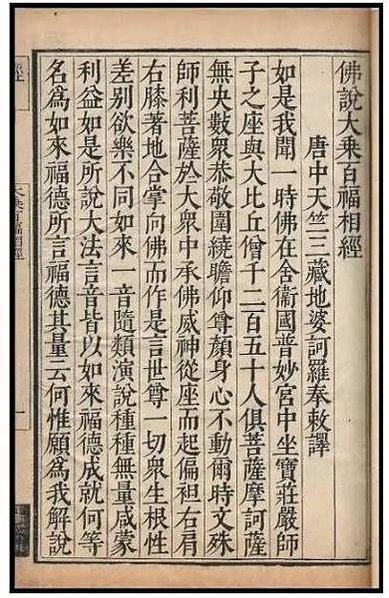 佛說大乘百福相經
唐中天竺三藏地婆訶羅奉敕譯
如是我聞一時佛在舍衞國普妙宮中坐寶莊嚴師
子之座與大比丘僧千二百五十人俱菩薩摩訶薩
無央數衆恭敬圍繞瞻仰尊顏身心不動爾時文殊
師利菩薩於大衆中承佛威神從座而起偏袒右肩
右膝著地合掌向佛而作是言世尊一切衆生根性
差別欲樂不同如來一音隨類演說種種無量咸蒙
利益如是所說大法言音皆以如來福德成就何等
名爲如來福德所言福德其量云何惟願爲我解說
大乘百福相經
一